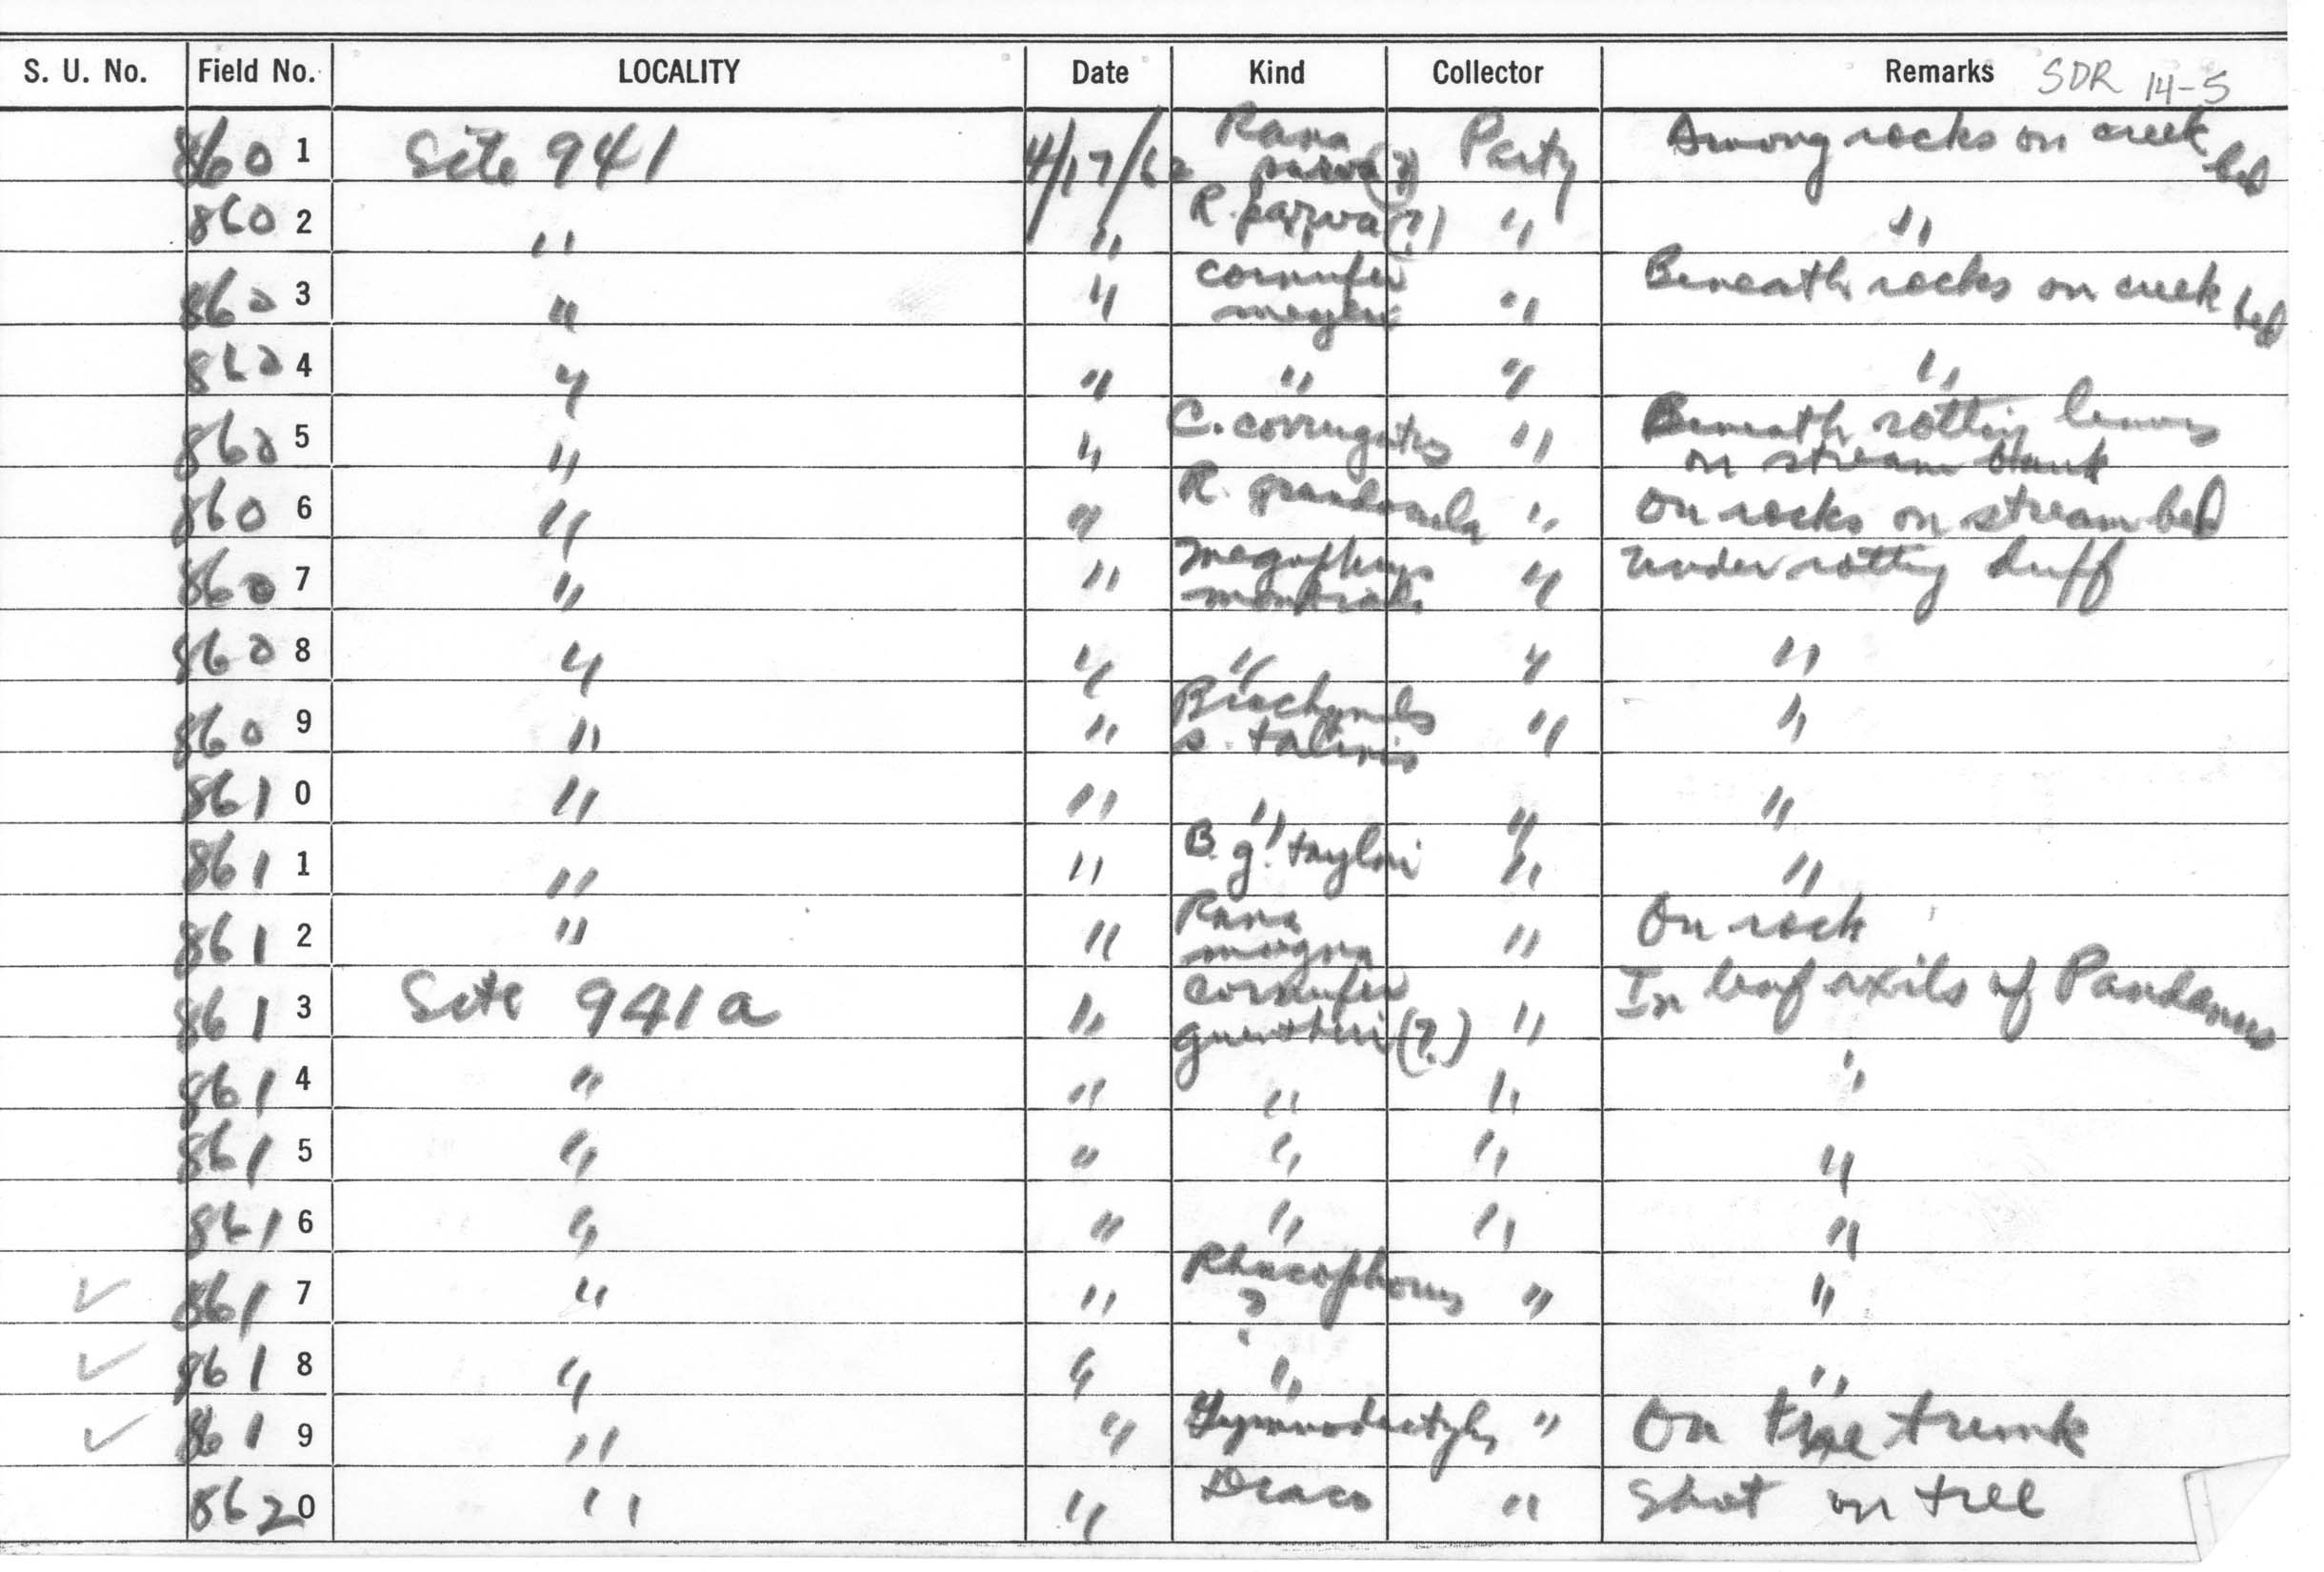 S. U. No. Field No. LOCALITY Date Kind Collector Remarks SDR 14-5
8601 Site 941 4/17/62 Rana parva(?) Party Among rocks on creek bed
8602 " " R. parva(?) " "
8603 " " Cornufer meyeri " Beneath rocks on creek bed
8604 " " " " "
8605 " " C. corrugatus " Beneath rotting leaves on stream bank
8606 " " R. grandocula " On rocks on stream bed
8607 " " Megophrys monticola " Under rotting duff
8608 " " " " "
8609 " " Brachymeles s. talinis " "
8610 " " " " "
8611 " " B. g. taylori " "
8612 " " Rana magna " On rock
8613 Site 941a " Cornufer guentheri (?) " In leaf axils of Pandanus
8614 " " " " "
8615 " " " " "
8616 " " " " "
✓ 8617 " " Rhacophorus ? " "
✓ 8618 " " " "
✓ 8619 " " Gymnodactylus " On tree trunk
8620 " " Draco " Shot on tree